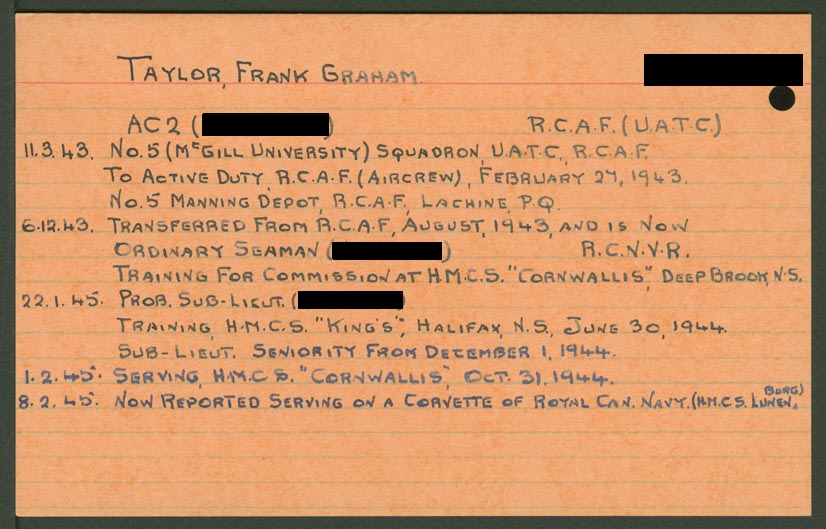 TAYLOR, FRANK GRAHAM.
AC2 ( ) R.C.A.F. (U.A.T.C.)
11.3.43. No.5 (McGILL UNIVERSITY) SQUADRON, U.A.T.C., R.C.A.F.
TO ACTIVE DUTY, R.C.A.F. (AIRCREW), FEBRUARY 27, 1943.
No.5 MANNING DEPOT, R.C.A.F., LACHINE, P.Q.
6.12.43. TRANSFERRED FROM R.C.A.F., AUGUST, 1943, AND IS NOW
ORDINARY SEAMAN ( ) R.C.N.V.R.
TRAINING FOR COMMISSION AT H.M.C.S. "CORNWALLIS", DEEP BROOK, N.S.
22.1.45. PROB. SUB-LIEUT. ( )
TRAINING, H.M.C.S. "KING'S", HALIFAX, N.S., JUNE 30, 1944.
SUB-LIEUT. SENIORITY FROM DECEMBER 1, 1944.
1.2.45. SERVING, H.M.C.S. "CORNWALLIS", OCT. 31, 1944.
8.2.45. NOW REPORTED SERVING ON A CORVETTE OF ROYAL CAN. NAVY. (H.M.C.S. LUNENBURG)